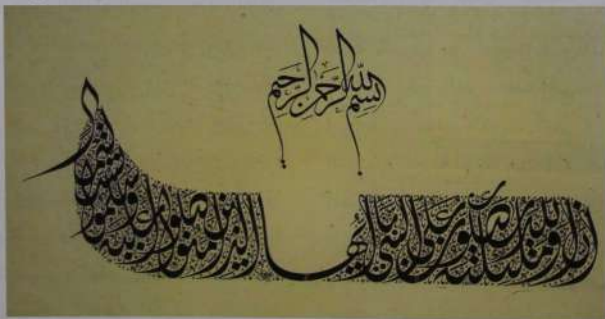 بسم الله الرحمن الرحيم
ان الله وملائكته يصلون على النبي يا ايها الذين امنوا صلوا عليه وسلموا تسليما